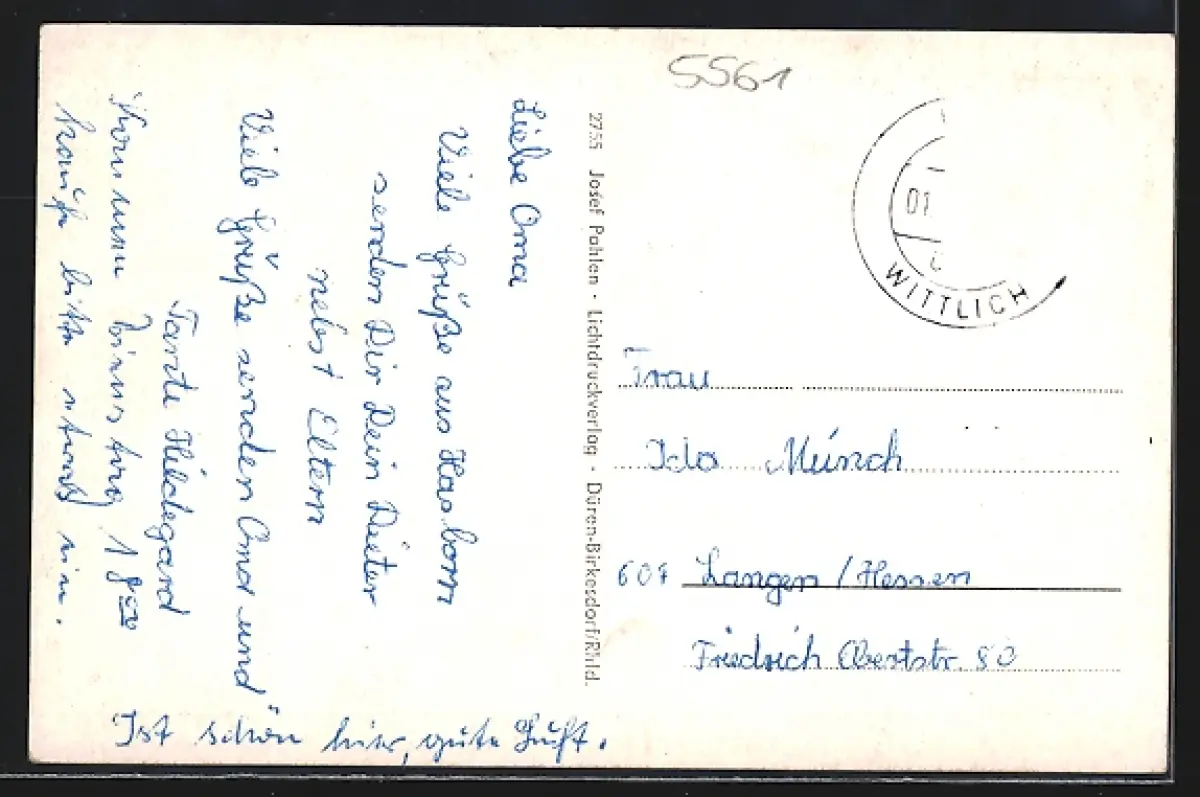 Liebe Oma
Viele Grüße aus Hasborn
senden Dir Dein Dieter
nebst Eltern
Viele Grüße senden Oma und
Tante Hildegard
Kommen Dienstag 18
bitte
Ist schön hier, gute Luft.
2755 Josef Pahlen · Lichtdruckverlag · Düren-Birkesdorf/Rhld.
5561
01
WITTLICH
Frau
Ida Münch
607 Langen / Hessen
Friedrich Ebertstr. 80